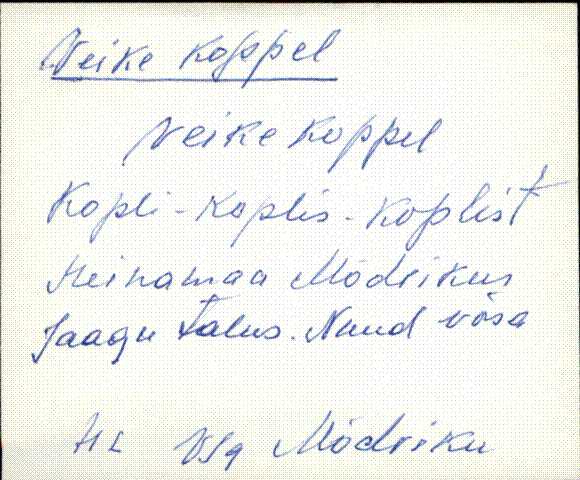 Veike Koppel
Veike Koppel
Kopli - Koplis - Koplist
Heinamaa Mödrikus
Jaagu talus. Nüüd võsa
HL VJg Mödriku